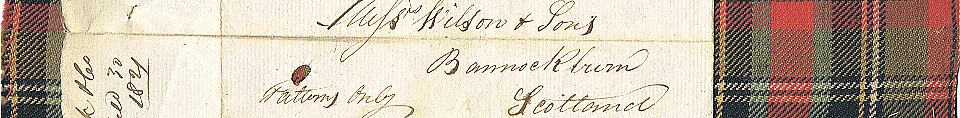 Messrs Wilson & Sons
Bannockburn
Patterns Only
Scotland
& Co
30
1821